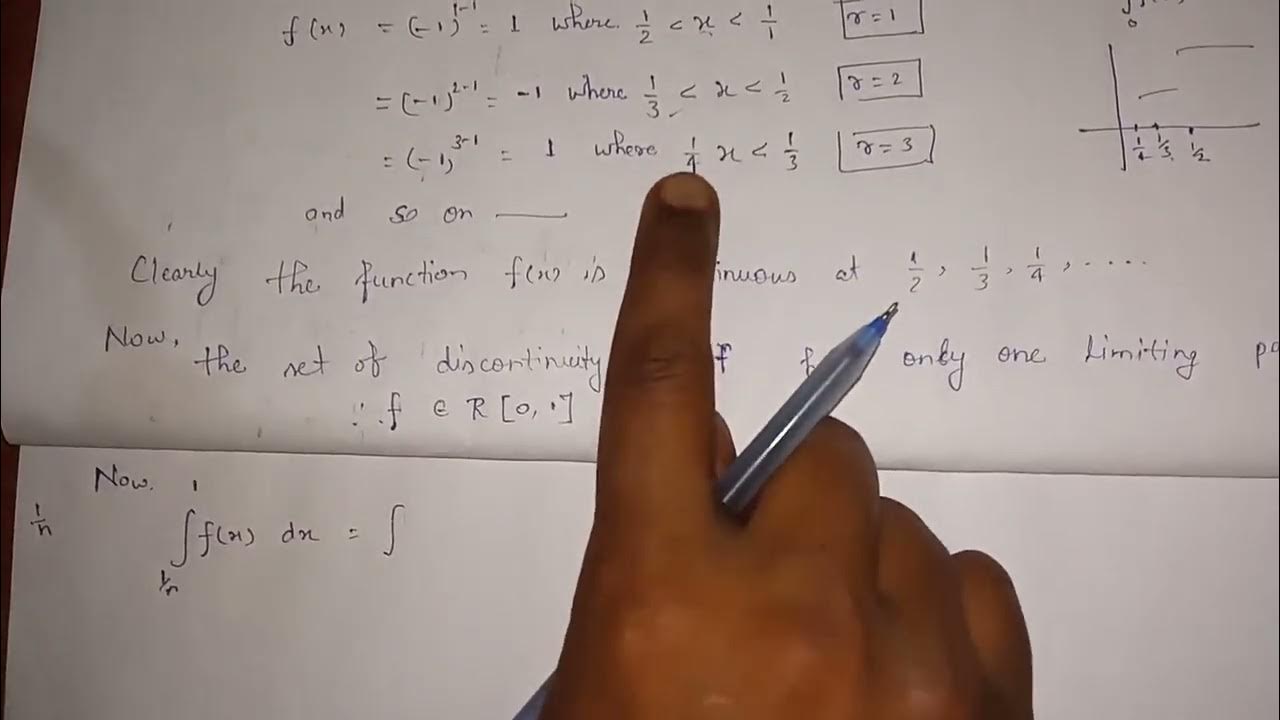 f(x) = (-1)^{1-1} = 1 where 1/2 < x < 1/1 r = 1
= (-1)^{2-1} = -1 where 1/3 < x < 1/2 r = 2
= (-1)^{3-1} = 1 where 1/4 x < 1/3 r = 3
1/4 1/3 1/2
and so on
Clearly the function f(x) is at 1/2, 1/3, 1/4, .....
Now,
the set of discontinuity only one limiting
∴ f ∈ R [0, 1]
Now.
1/n ∫_{1/n}^{1} f(x) dx = ∫